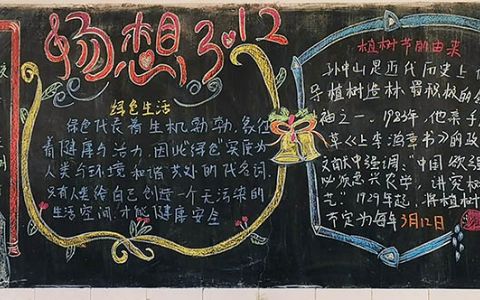 畅想3·12
绿色生活
绿色代表着生机勃勃,象征
着健康与活力,因此绿色家庭为
人类与环境和谐共处的代名词,
只有人类给自己创造一个无污染的
生活空间,才能健康安全
植树节的由来
孙中山是近代历史上
导植树造林最积极的
神之一,1983年,他亲手
草《上李鸿章书》的政
文献中强调,"中国欲强
必须急兴农学,讲究树
艺"1929年起,将植树
节定为每年3月12日